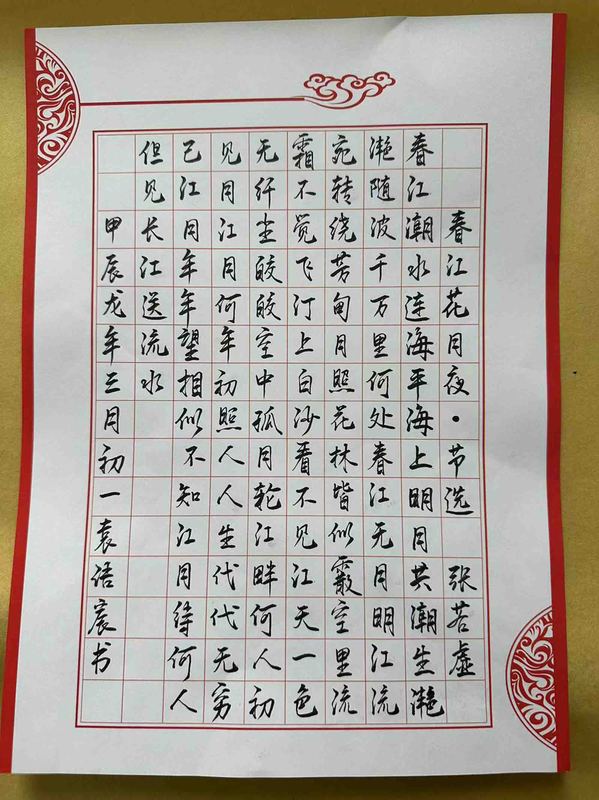 春江花月夜·节选 张若虚
春江潮水连海平海上明月共潮生滟
滟随波千万里何处春江无月明江流
宛转绕芳甸月照花林皆似霰空里流
霜不觉飞汀上白沙看不见江天一色
无纤尘皎皎空中孤月轮江畔何人初
见月江月何年初照人人生代代无穷
已江月年年望相似不知江月待何人
但见长江送流水
甲辰龙年三月初一袁语宸书